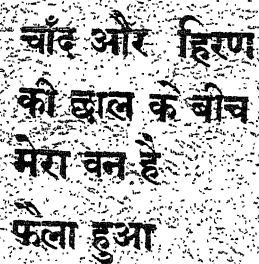 चाँद और हिरण
की छाल के बीच
मेरा वन है
फैला हुआ